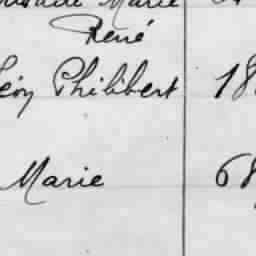 Marie
René
Léon Philibert 18
Marie 68